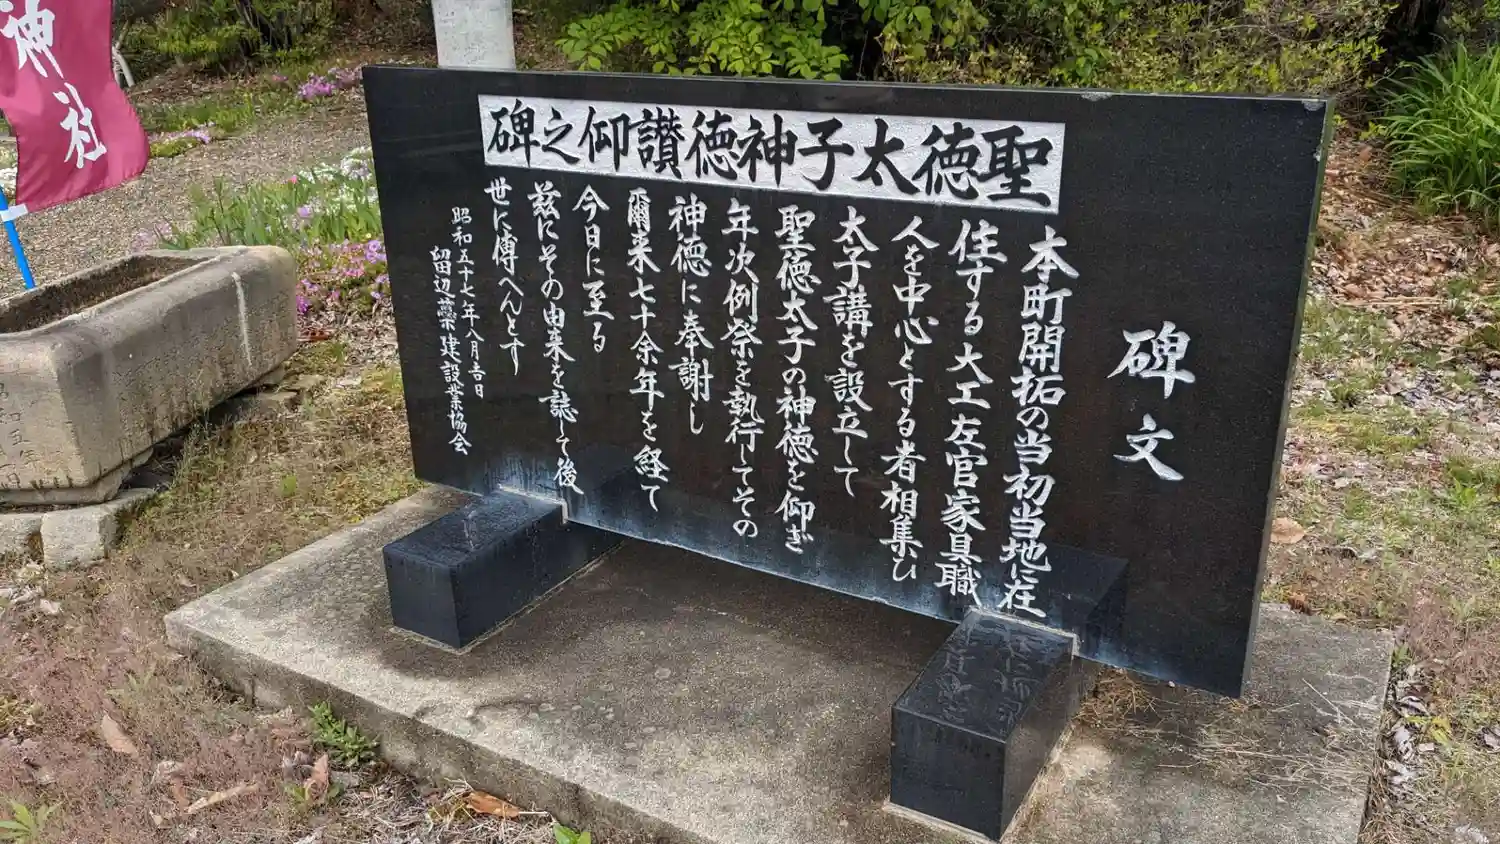 聖徳太子神徳讃仰之碑
碑文
本町開拓の当初当地に在
住する大工左官家具職
人を中心とする者相集ひ
太子講を設立して
聖徳太子の神徳を仰ぎ
年次例祭を執行してその
神徳に奉謝し
爾来七十余年を経て
今日に至る
玆にその由来を誌して後
世に傳へんとす
昭和五十七年八月吉日
留辺蘂建設業協会
神社